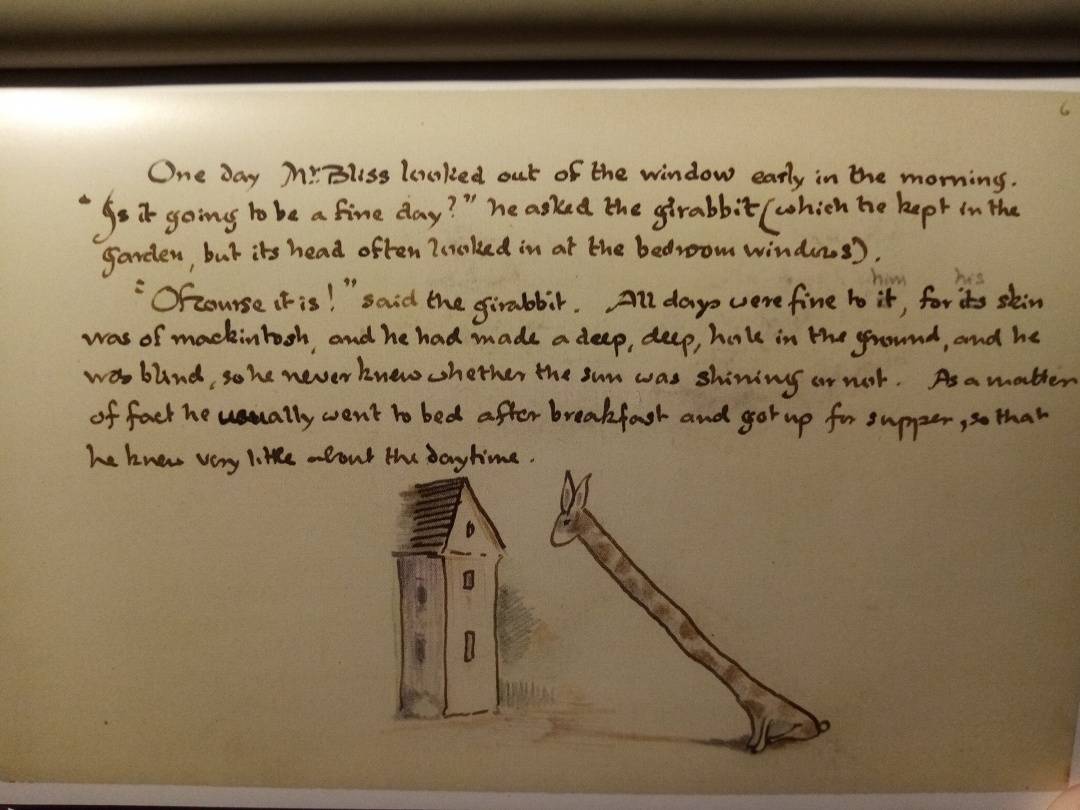 6
One day Mr. Bliss looked out of the window early in the morning.
"Is it going to be a fine day?" he asked the girabbit (which he kept in the
garden, but its head often looked in at the bedroom windows).
him his
"Ofcourse it is!" said the girabbit. All days were fine to it, for its skin
was of mackintosh, and he had made a deep, deep, hole in the ground, and he
was blind, so he never knew whether the sun was shining or not. As a matter
of fact he usually went to bed after breakfast and got up for supper, so that
he knew very little about the daytime.